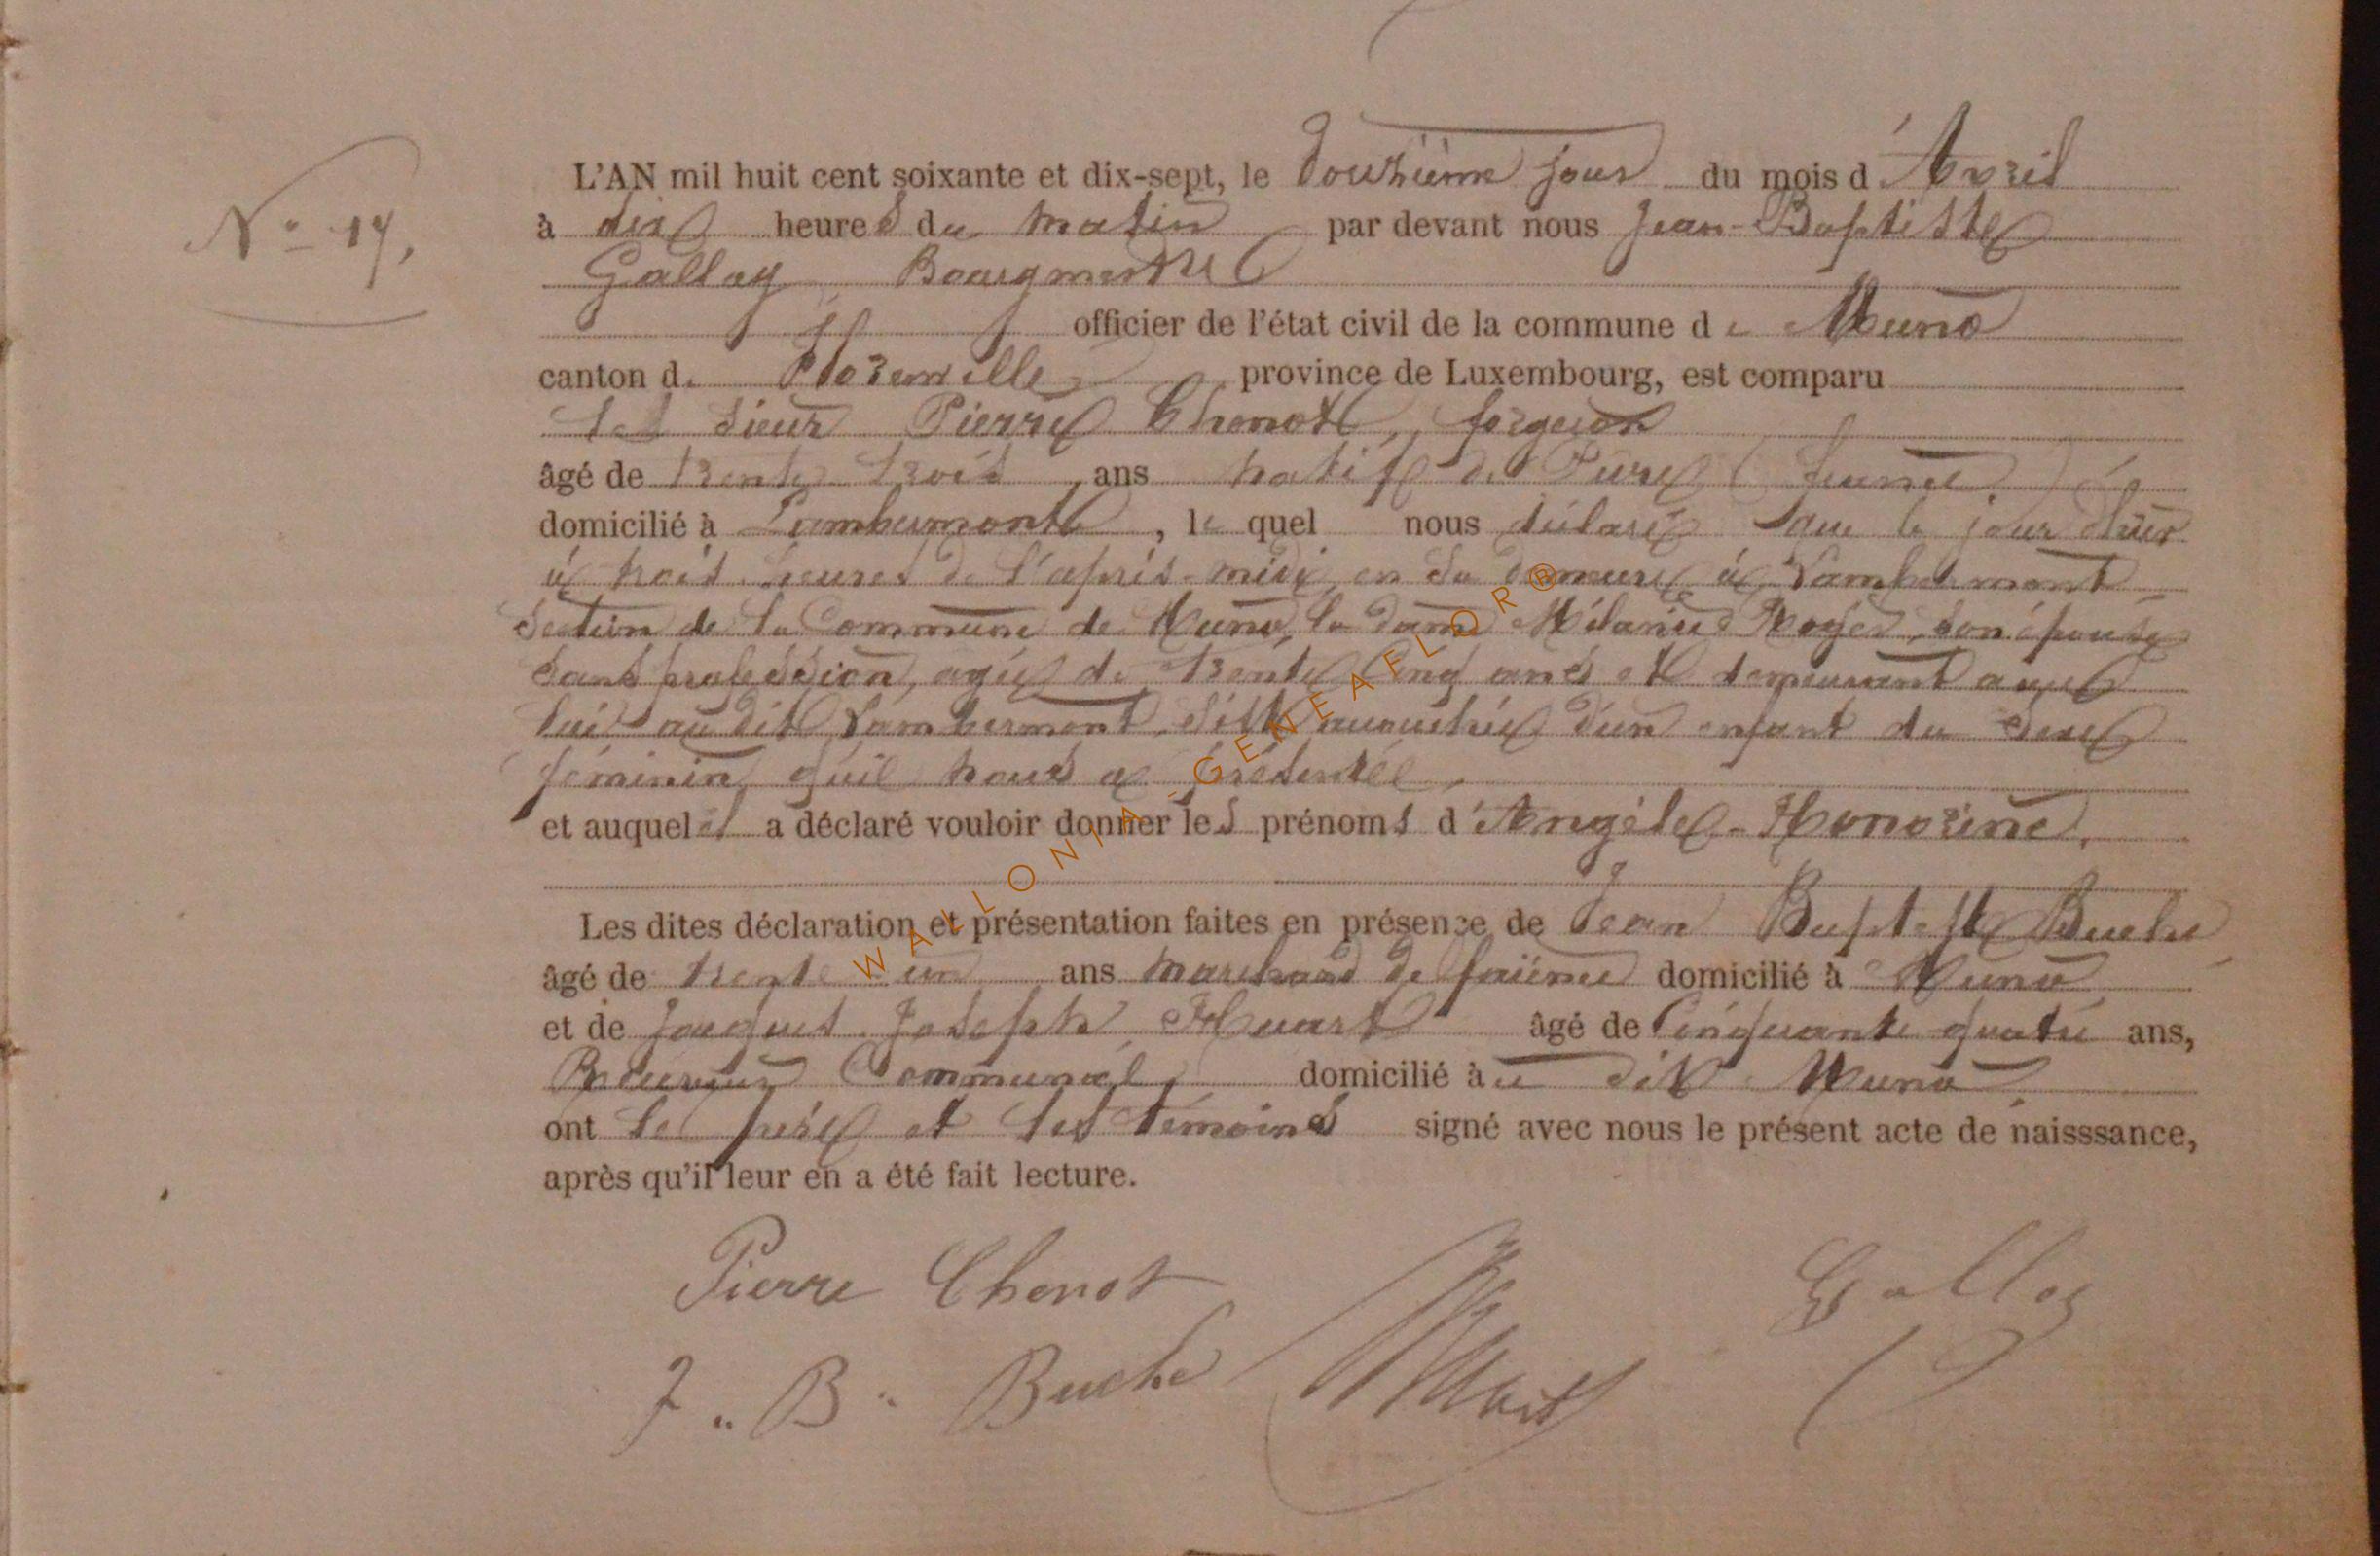 N° 17.
L'AN mil huit cent soixante et dix-sept, le Douzième jour du mois d'Avril
à dix heures du matin par devant nous Jean-Baptiste
Galloy Bourgmestre
officier de l'état civil de la commune de Muno
canton de Florenville, province de Luxembourg, est comparu
le sieur Pierre Chenot, forgeron
âgé de trente trois ans natif de Pure
domicilié à Lambermont, le quel nous déclaré que le jour d'hier
à trois heures de l'après-midi, en sa demeure à Lambermont
section de la Commune de Muno, la dame Mélanie Noyer, son épouse
sans profession, agée de trente cinq ans et demeurant avec
lui au dit Lambermont, s'est accouchée d'un enfant du sexe
féminin qu'il nous a présenté
et auquel il a déclaré vouloir donner les prénoms d'Angèle-Honorine.
Les dites déclaration et présentation faites en présence de Jean Baptiste Buché
âgé de trente un ans marchand de domicilié à Muno
et de Jacques Joseph Huart âgé de Cinquante quatre ans,
Receveur Communal, domicilié à u dit Muno
ont le père et les témoins signé avec nous le présent acte de naisssance,
après qu'il leur en a été fait lecture.
Pierre Chenot
Galloy
J. B. Buché
Huart
WALLONIA-GENEAFLOR®